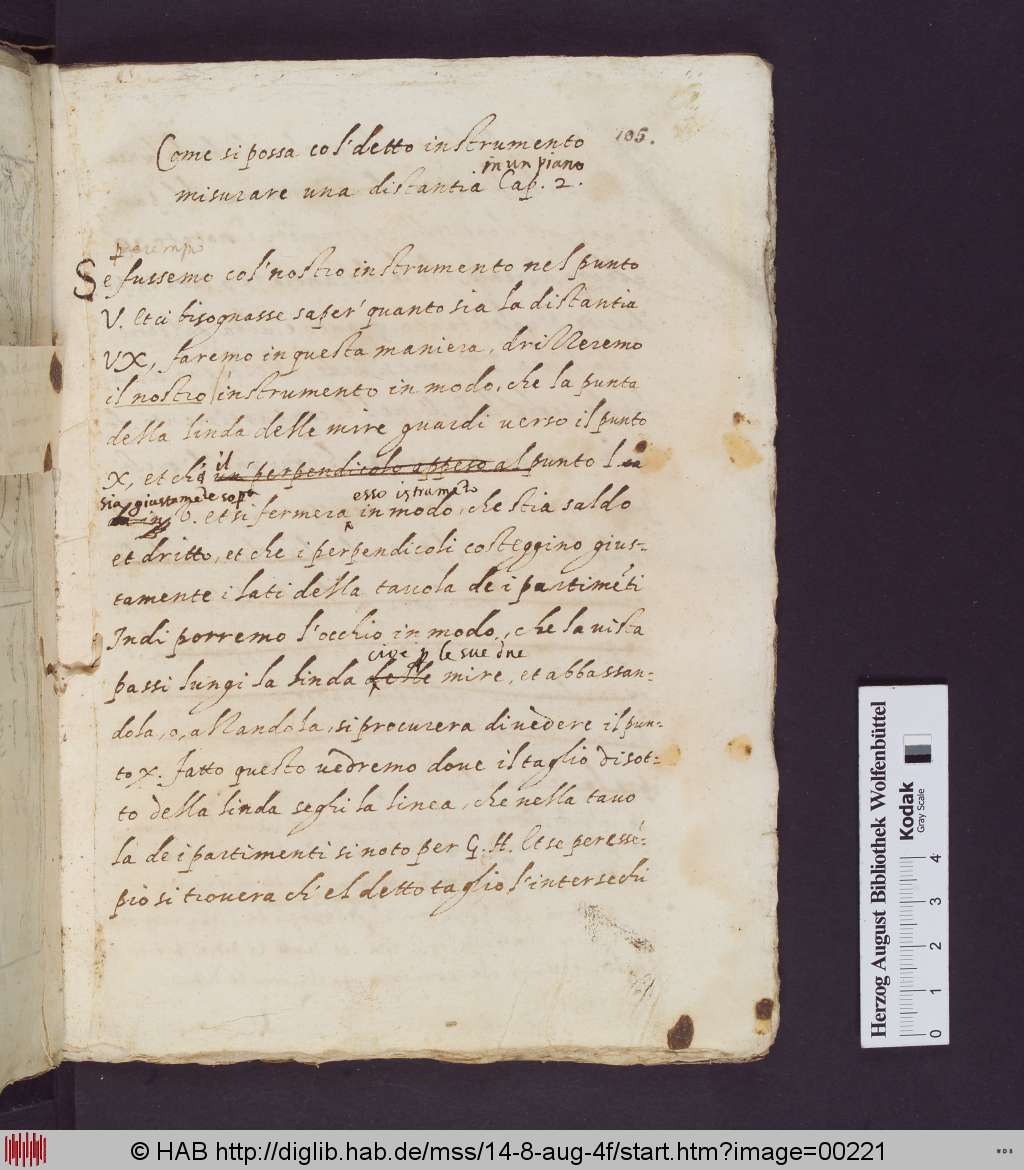 105.
Come si possa col' detto instrumento
in un piano
misurare una distantia Cap. 2.
per esempio
Se fussemo col' nostro instrumento nel punto
V. Et ci bisognasse saper' quanto sia la distantia
VX, faremo in questa maniera, drizzeremo
il nostro instrumento in modo, che la punta
della linda delle mire guardi verso il punto
X, et ch' il un' perpendicolo appeso al punto L
sia giustamẽte sopra esso istrumẽto
V. et si fermera in modo, che stia saldo
et dritto, et che i perpendicoli costeggino gius-
tamente i lati della tavola de i partimẽti
Indi porremo l'occhio in modo, che la vista
cioe p le sue due
passi lungi la linda delle mire, et abbassan-
dola, o, alzandola, si procurera di vedere il pun-
to X. fatto questo vedremo dove il taglio di sot-
to della linda seghi la linea, che nella tavo
la de i partimenti si noto per G. H. Et se per essẽ-
pio si trovera ch' el detto taglio l'intersechi
Herzog August Bibliothek Wolfenbüttel
Kodak
Gray Scale
0 1 2 3 4
© HAB http://diglib.hab.de/mss/14-8-aug-4f/start.htm?image=00221